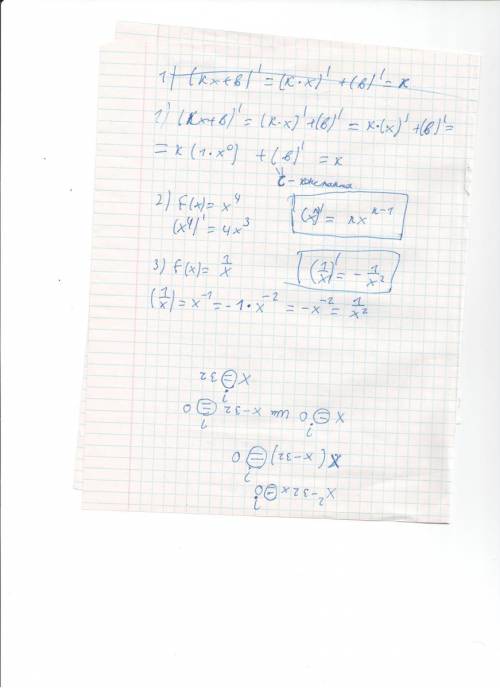 1) (кx+в)' = (к·x)' + (в)' = к
1) (кx+в)' = (к·x)' + (в)' = к·(x)' + (в)' =
= к (1·x⁰) + (в)' = к
c - константа
2) f(x) = x⁴
(x⁴)' = 4x³
(xⁿ)' = nxⁿ⁻¹
3) f(x) = 1/x
(1/x)' = -1/x²
(1/x) = x⁻¹ = -1·x⁻² = -x⁻² = 1/x²
x²-32x = 0
x(x-32) = 0
x = 0 или x-32 = 0
x = 32